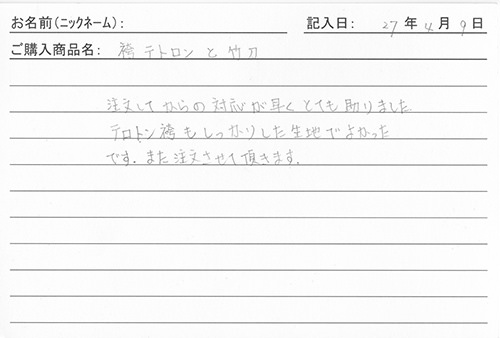 お名前(ニックネーム): 記入日: 27年4月9日
ご購入商品名: 袴 テトロン と 竹刀
注文してからの対応が早くとても助りました
テロトン袴もしっかりした生地でよかった
です. また注文させて頂きます.